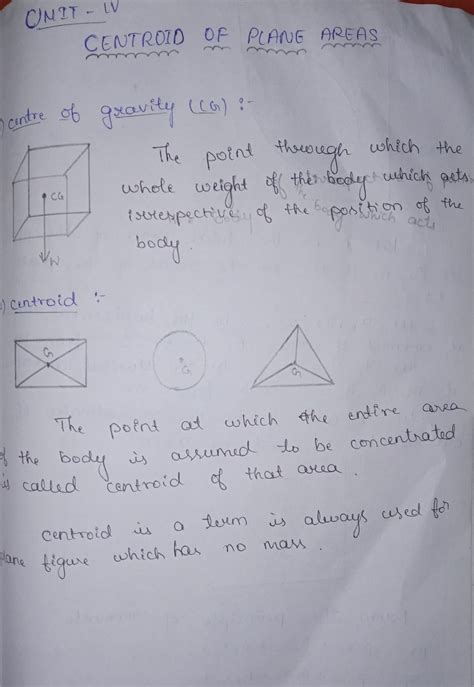 UNIT - IV
CENTROID OF PLANE AREAS
) centre of gravity (CG) :-
The point through which the
whole weight of the body which acts
irrespective of the position of the
body.
CG
W
) centroid :-
G G G
The point at which the entire area
of the body is assumed to be concentrated
is called centroid of that area.
centroid is a term is always used for
plane figure which has no mass.